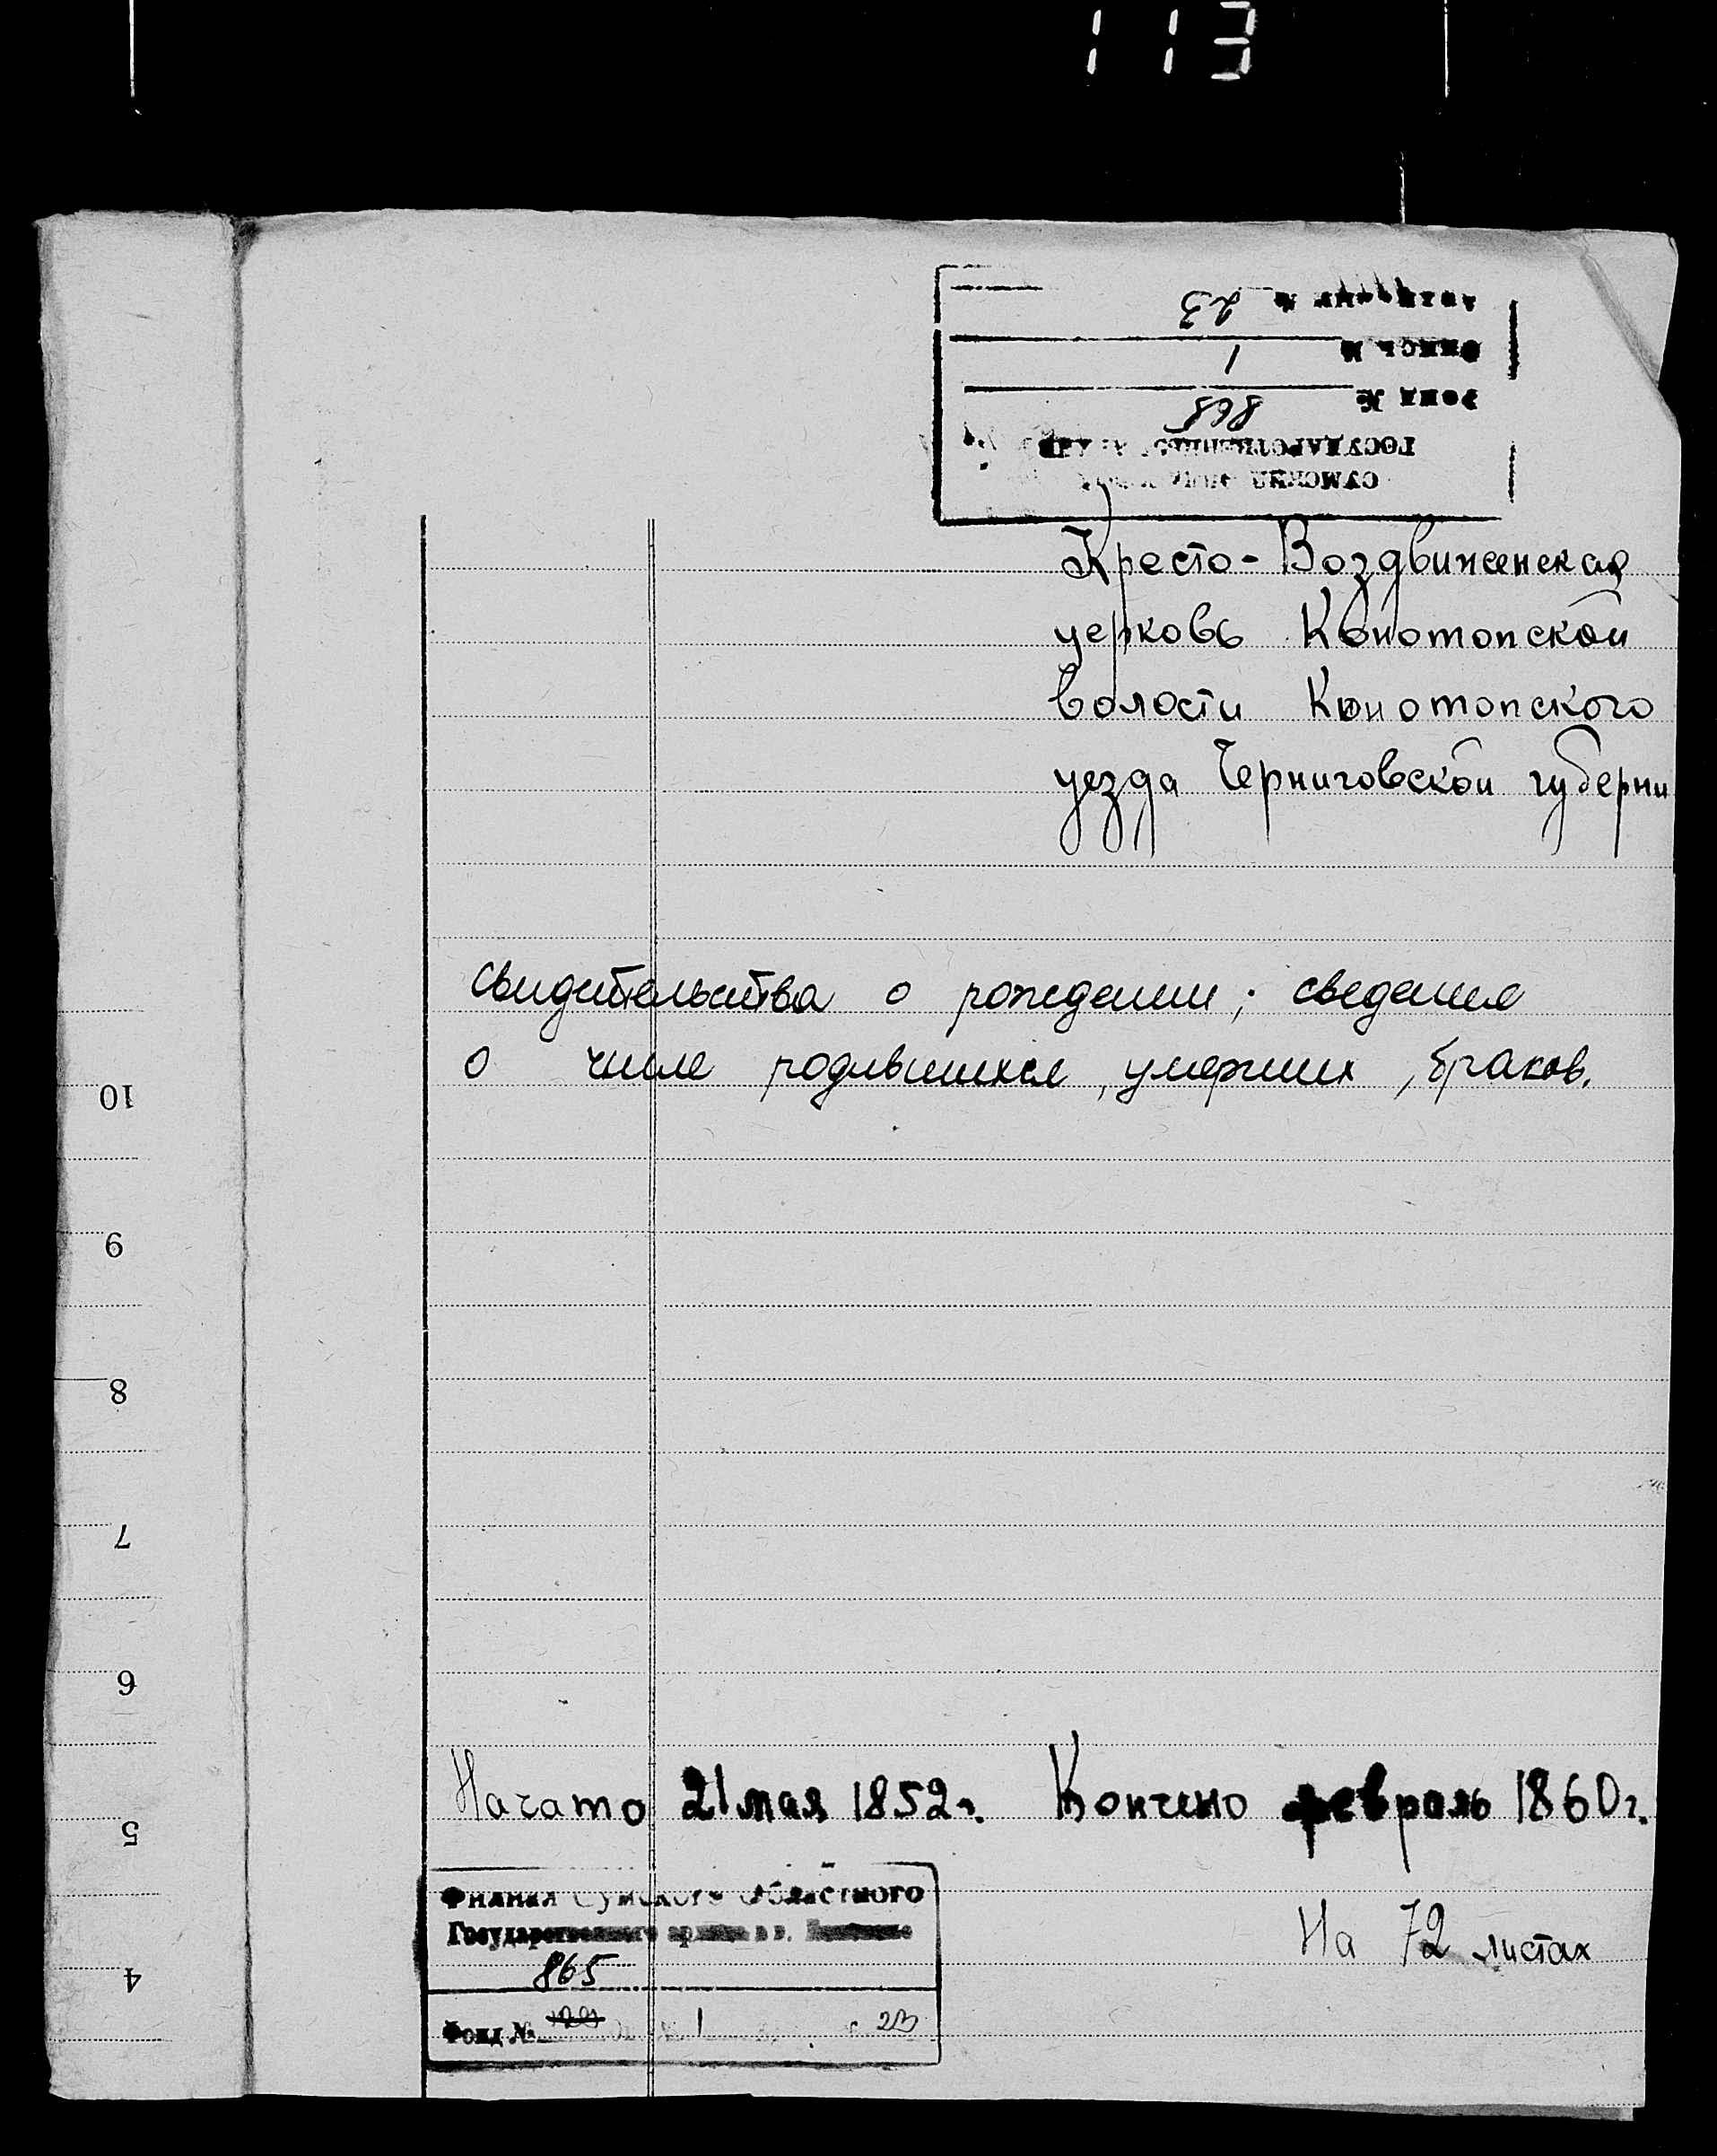 113
СУМСКИЙ
ГОСУДАРСТВЕННЫЙ
Фонд № 865
Опись № 1
23
Кресто-Воздвиженская
церковь Конотопской
волости Конотопского
уезда Черниговской губерни
свидетельства о рождении; сведения
о числе родившихся, умерших, браков.
10
9
8
7
6
5
4
Начато 21 мая 1852 г. Кончено февраль 1860 г.
Филиал Сумского Областного
Государственного архива в г.
На 72 листах
865
Фонд № 1 23